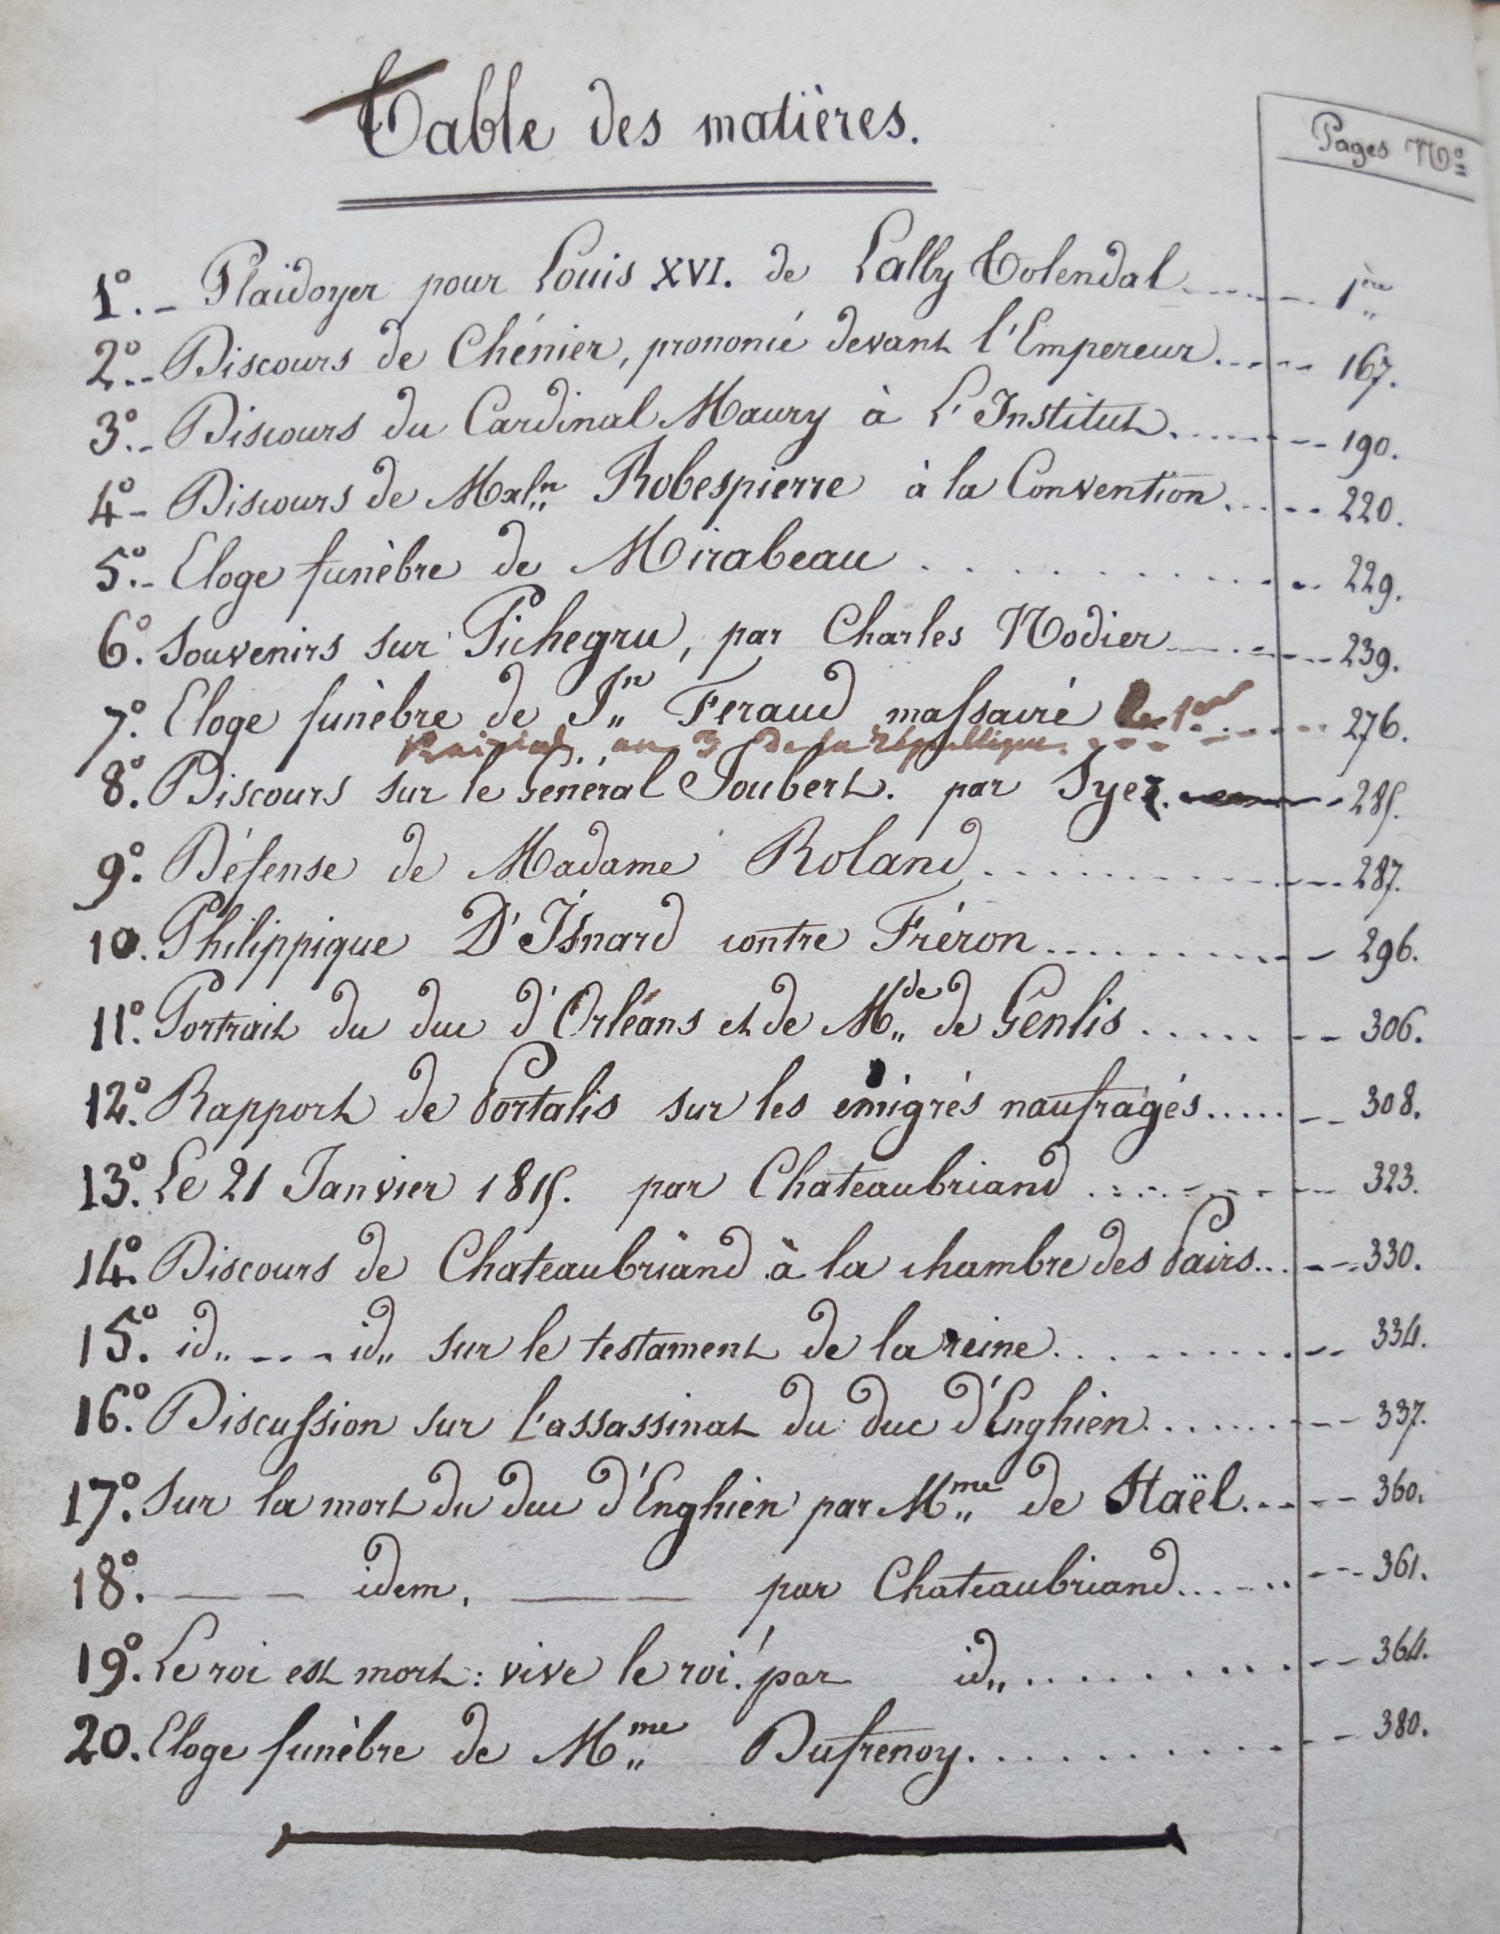 Table des matières.
Pages Nº
1º. - Plaidoyer pour Louis XVI. de Lally Tolendal ........ 1ère
2º.. Discours de Chénier, prononcé devant l'Empereur...... 167.
3º.. Discours du Cardinal Maury à L'Institut........ 190.
4º- Discours de Maxln Robespierre à la Convention...... 220.
5º.- Eloge funèbre de Mirabeau .............. 229.
6º. Souvenirs sur Pichegru, par Charles Nodier........ 239.
7º. Eloge funèbre de Jn Feraud massacré le 1er ...... 276.
Prairial, an 3 de la République. ...
8º. Discours sur le Général Joubert. par Syez. 285.
9º. Défense de Madame Roland ............ 287.
10. Philippique D'Isnard contre Fréron........... 296.
11º. Portrait du duc d'Orléans et de Mde de Genlis ....... 306.
12º. Rapport de Portalis sur les émigrés naufragés....... 308.
13º. Le 21 Janvier 1815. par Chateaubriand ......... 323.
14º. Discours de Chateaubriand à la chambre des Pairs..... 330.
15º. id,, --- id,, sur le testament de la reine........... 334.
16º. Discussion sur l'assassinat du duc d'Enghien........ 337.
17º. Sur la mort du duc d'Enghien par Mme de Staël..... 360.
18º. — — idem, — — par Chateaubriand........ 361.
19º. Le roi est mort : vive le roi! par id,,........... 364.
20. Eloge funèbre de Mme Dufrenoy............ 380.